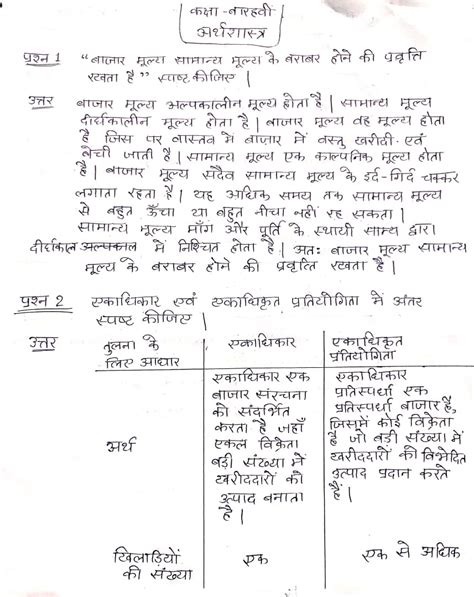 कक्षा - बारहवी
अर्थशास्त्र
प्रश्न 1 "बाजार मूल्य सामान्य मूल्य के बराबर होने की प्रवृति
रखता है" स्पष्ट कीजिए |
उत्तर बाजार मूल्य अल्पकालीन मूल्य होता है | सामान्य मूल्य
दीर्घकालीन मूल्य होता है | बाजार मूल्य वह मूल्य होता
है जिस पर वास्तव मे बाजार में वस्तु खरीदी एवं
बेची जाती है | सामान्य मूल्य एक काल्पनिक मूल्य होता
है | बाजार मूल्य सदैव सामान्य मूल्य के इर्द-गिर्द चक्कर
लगाता रहता है | यह अधिक समय तक सामान्य मूल्य
से बहुत ऊँचा या बहुत नीचा नहीं रह सकता |
सामान्य मूल्य माँग और पूर्ति के स्थायी साम्य द्वारा
दीर्घकाल अल्पकाल में निश्चित होता है | अतः बाजार मूल्य सामान्य
मूल्य के बराबर होने की प्रवृत्ति रखता है |
प्रश्न 2 एकाधिकार एवं एकाधिकृत प्रतियोगिता में अंतर
स्पष्ट कीजिए |
उत्तर तुलना के
लिए आधार
एकाधिकार
एकाधिकृत
प्रतियोगिता
अर्थ
एकाधिकार एक
बाजार संरचना
को संदर्भित
करता है जहाँ
एकल विक्रेता
बड़ी संख्या में
खरीददारों को
उत्पाद बनाता
है |
एकाधिकार
प्रतिस्पर्धा एक
प्रतिस्पर्धा बाजार है,
जिसमें कोई विक्रेता
है जो बड़ी संख्या में
खरीददारों को विभेदित
उत्पाद प्रदान करते
हैं |
खिलाड़ियों
की संख्या
एक
एक से अधिक